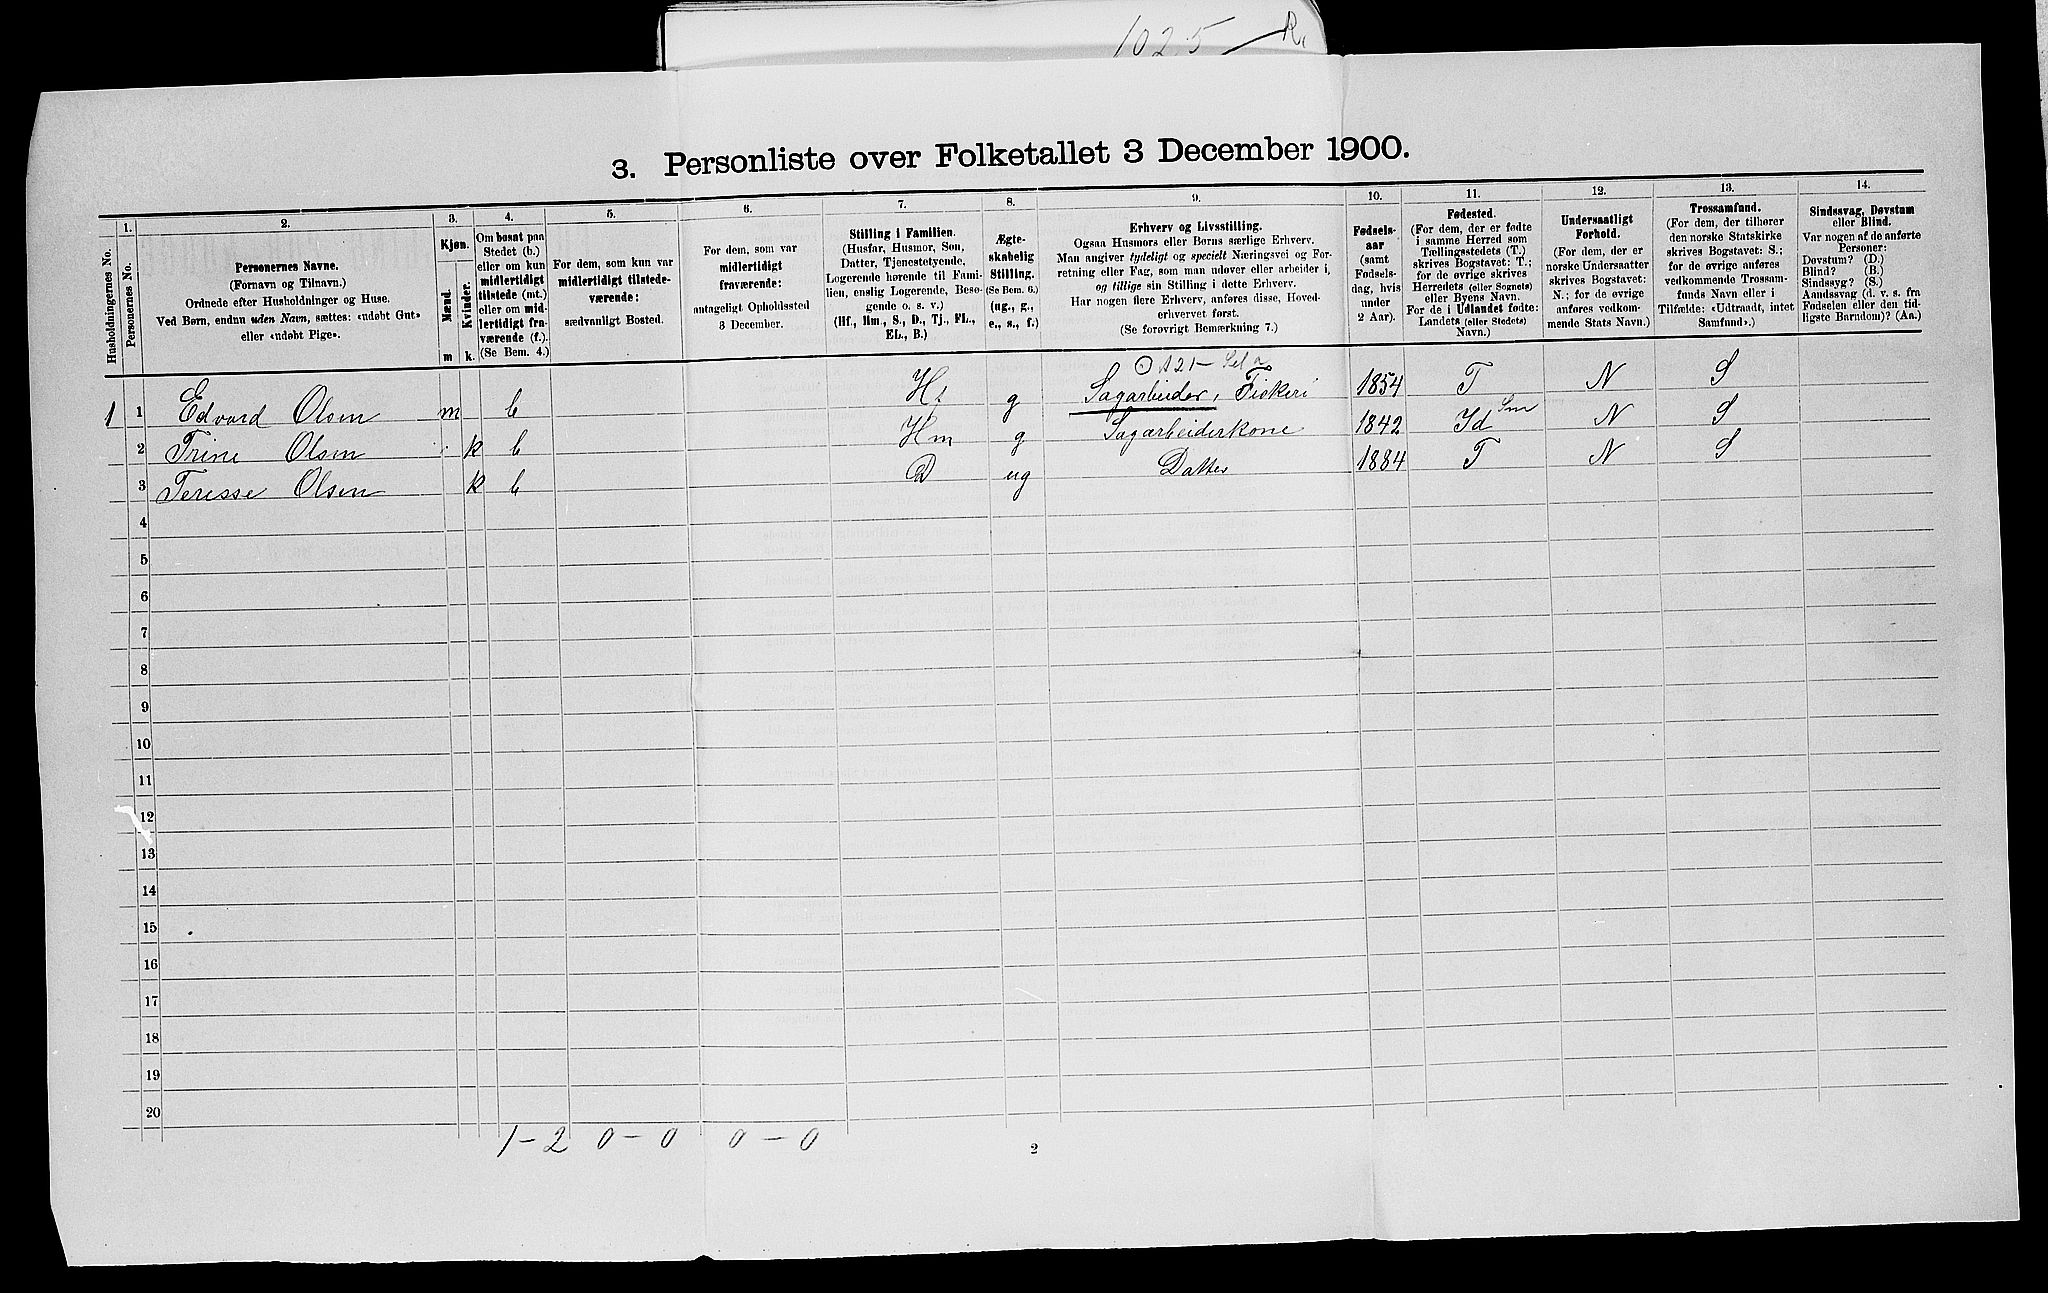 1025 — R.
3. Personliste over Folketallet 3 December 1900.
Husholdningernes No.
1.
Personernes No.
2.
Personernes Navne.
(Fornavn og Tilnavn.)
Ordnede efter Husholdninger og Huse.
Ved Børn, endnu uden Navn, sættes: «udøbt Gut»
eller «udøbt Pige».
3.
Kjøn.
Mænd.
Kvinder.
m
k.
4.
Om bosat paa
Stedet (b.)
eller om kun
midlertidigt
tilstede (mt.)
eller om mid-
lertidigt fra-
værende (f.).
(Se Bem. 4.)
5.
For dem, som kun var
midlertidigt tilstede-
værende:
sædvanligt Bosted.
6.
For dem, som var
midlertidigt
fraværende:
antageligt Opholdssted
3 December.
7.
Stilling i Familien.
(Husfar, Husmor, Søn,
Datter, Tjenestetyende,
Logerende hørende til Fami-
lien, enslig Logerende, Besø-
gende o. s. v.)
(Hf., Hm., S., D., Tj., FL.,
EL., B.)
8.
Ægte-
skabelig
Stilling.
(Se Bem. 6.)
(ug., g.,
e., s., f.)
9.
Erhverv og Livsstilling.
Ogsaa Husmors eller Børns særlige Erhverv.
Man angiver tydeligt og specielt Næringsvei og For-
retning eller Fag, som man udøver eller arbeider i,
og tillige sin Stilling i dette Erhverv.
Har nogen flere Erhverv, anføres disse, Hoved-
erhvervet først.
(Se forøvrigt Bemærkning 7.)
10.
Fødsels-
aar
(samt
Fødsels-
dag, hvis
under
2 Aar).
11.
Fødested.
(For dem, der er fødte
i samme Herred som
Tællingsstedets (T.)
skrives Bogstavet: T.;
for de øvrige skrives
Herredets (eller Sognets)
eller Byens Navn.
For de i Udlandet fødte:
Landets (eller Stedets)
Navn.)
12.
Undersaatligt
Forhold.
(For dem, der er
norske Undersaatter
skrives Bogstavet:
N.; for de øvrige
anføres vedkom-
mende Stats Navn.)
13.
Trossamfund.
(For dem, der tilhører
den norske Statskirke
skrives Bogstavet: S.;
for de øvrige anføres
vedkommende Trossam-
funds Navn eller i
Tilfælde: «Udtraadt, intet
Samfund».)
14.
Sindssvag, Døvstum
eller Blind.
Var nogen af de anførte
Personer:
Døvstum? (D.)
Blind? (B.)
Sindssyg? (S.)
Aandssvag (d. v. s. fra
Fødselen eller den tid-
ligste Barndom)? (Aa.)
121 —
1 1 Edvard Olsen m b Hf g Sagarbeider, Fiskeri 1854 T N S
Sm
2 Trine Olsen k b Hm g Sagarbeiderkone 1842 Id N S
3 Teresse Olsen k b D ug Datter 1884 T N S
4
5
6
7
8
9
10
11
12
13
14
15
16
17
18
19
20
1 – 2 0 – 0 0 – 0
2